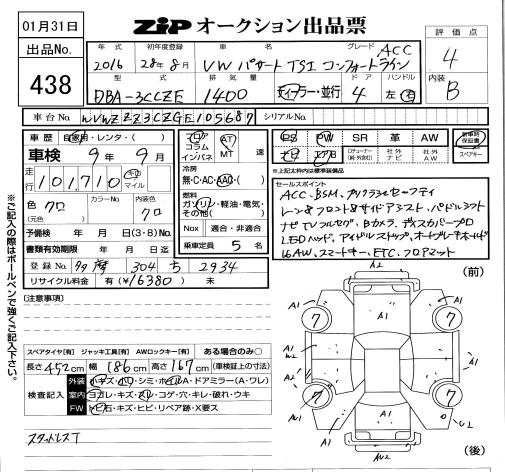 01月31日
ZIP オークション出品票
評価点
4
内装
B
出品No.
438
年式
2016
初年度登録
28年8月
車名
VW パサート TSI コンフォートライン
グレード
ACC
型式
DBA-3CCZE
排気量
1400
ディーラー・並行
ドア
4
ハンドル
左・右
車台No.
WVWZZZ3CZGE105687
シリアルNo.
車歴
自家用・レンタ・( )
車検 9年 9月
走行
101,710
キロ
マイル
色
クロ
(元色)
カラーNo.
内装色
クロ
予備検 年 月 日(3・8)No.
書類有効期限 年 月 日迄
登録No. 多摩 304 ち 2934
リサイクル料金 有(¥16380) 未
フロア
コラム
インパネ
AT
MT
速
冷房
無・C・AC・AAC( )
燃料
ガソリン・軽油・電気・その他( )
Nox 適合・非適合
乗車定員 5 名
PS PW SR 革 AW
ナビ
AW
エアB
新車時保証書
スペアキー
※上記太枠内は標準装備品
セールスポイント
ACC、BSM、プリクラッシュセーフティ
レーン&フロント&サイドアシスト、パドルシフト
ナビTVフルセグ、Bカメラ、ディスカバープロ
LEDヘッド、アイドルストップ、オートブレーキホールド
16AW、スマートキー、ETC、フロアマット
※ご記入の際はボールペンで強くご記入下さい。
[注意事項]
スペアタイヤ[有] ジャッキ工具[有] AWロックキー[有] ある場合のみ○
長さ 452cm 幅 186cm 高さ 167cm (車検証上の寸法)
検査記入
外装 小キズ・凹・シミ・ホイルA・ドアミラー(A・ワレ)
室内 ヨゴレ・キズ・スレ・コゲ・穴・キレ・破れ・ウキ
FW トビ石・キズ・ヒビ・リペア跡・X要ス
スタッドレスT
(前)
A2
A1
A1
7
7
A1
A1
A1
A1
A2
A1
7
7
A1
A1
(後)